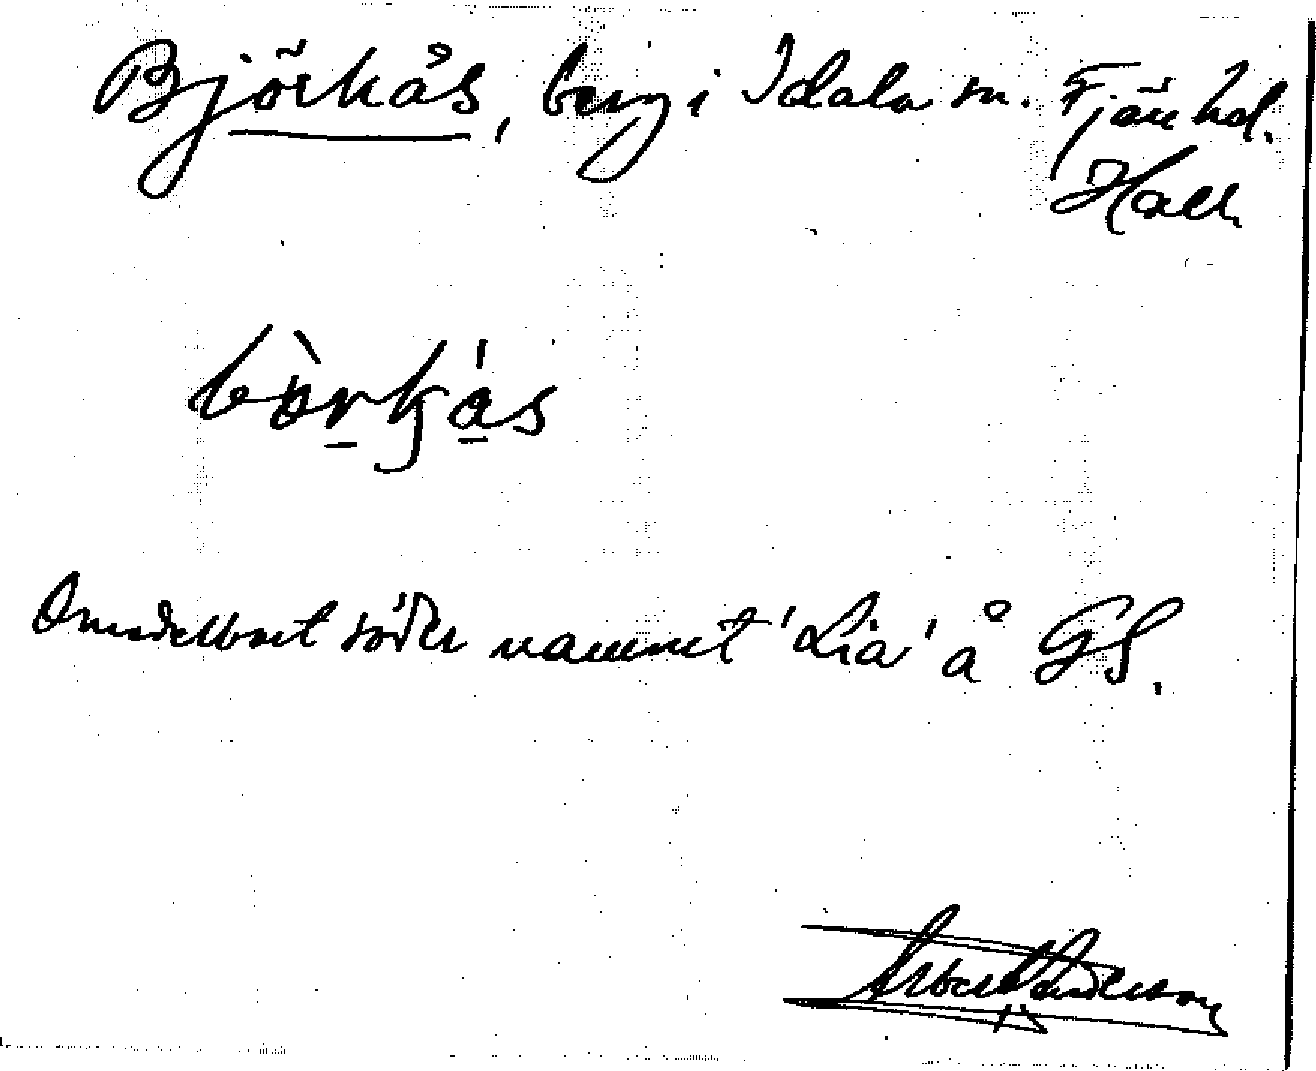 Björkås, berg i Idala sn. Fjäre hd.
Hall.
bò̀rkás
Omedelbart söder namnet 'Lia' å GS.
Albert Anderson